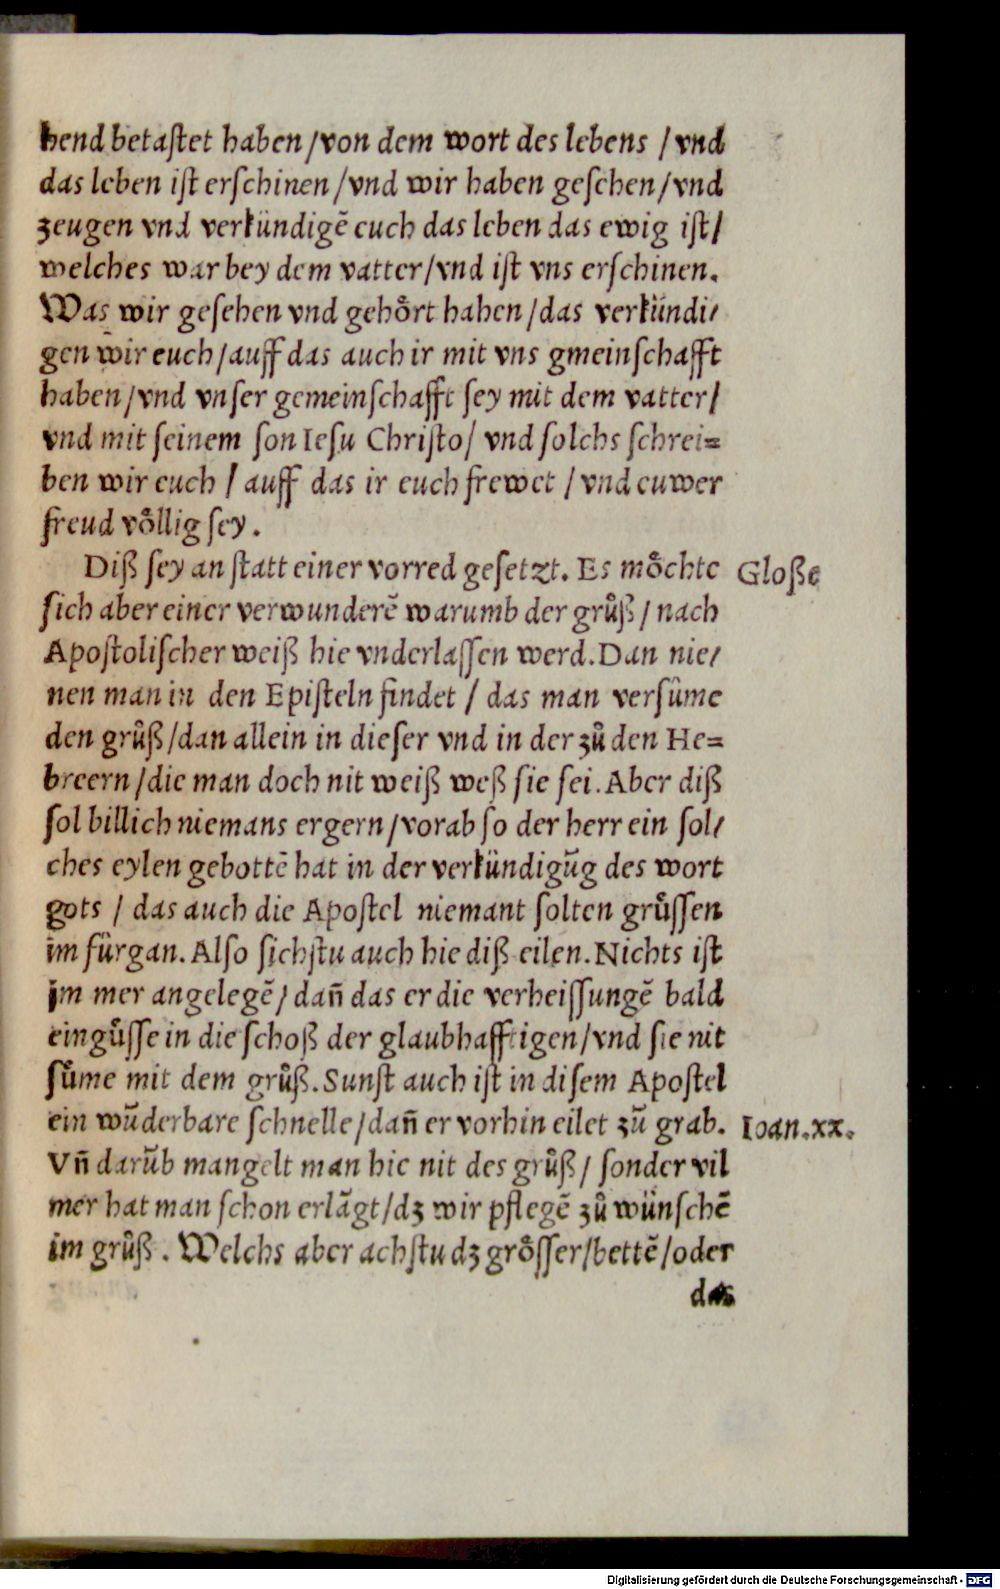 hend betaſtet haben / von dem wort des lebens / vnd
das leben iſt erſchinen / vnd wir haben geſehen / vnd
zeugen vnd verkündigẽ euch das leben das ewig iſt /
welches war bey dem vatter / vnd iſt vns erſchinen.
Was wir geſehen vnd gehoͤrt haben / das verkündi⸗
gen wir euch / auff das auch ir mit vns gmeinſchafft
haben / vnd vnſer gemeinſchafft ſey mit dem vatter /
vnd mit ſeinem ſon Ieſu Chriſto / vnd ſolchs ſchrei⸗
ben wir euch / auff das ir euch frewet / vnd euwer
freud voͤllig ſey.
Diß ſey an ſtatt einer vorred geſetzt. Es moͤchte
Gloße
ſich aber einer verwunderẽ warumb der gruͦß / nach
Apoſtoliſcher weiß hie vnderlaſſen werd. Dan nie⸗
nen man in den Epiſteln findet / das man verſûme
den gruͦß / dan allein in dieſer vnd in der zuͦ den He⸗
breern / die man doch nit weiß weß ſie ſei. Aber diß
ſol billich niemans ergern / vorab ſo der herr ein ſol⸗
ches eylen gebottẽ hat in der verkündigũg des wort
gots / das auch die Apoſtel niemant ſolten gruͤſſen
im fürgan. Alſo ſichſtu auch hie diß eilen. Nichts iſt
jm mer angelegẽ / dañ das er die verheiſſungẽ bald
einguͤſſe in die ſchoß der glaubhafftigen / vnd ſie nit
ſuͦme mit dem gruͦß. Sunſt auch iſt in diſem Apoſtel
ein wũderbare ſchnelle / dañ er vorhin eilet zũ grab.
Ioan.xx.
Vñ darũb mangelt man hie nit des gruͦß / ſonder vil
mer hat man ſchon erlãgt / dz wir pflegẽ zuͦ wünſchẽ
im gruͦß. Welchs aber achſtu dz groͤſſer / bettẽ / oder
das
Digitalisierung gefördert durch die Deutsche Forschungsgemeinschaft - DFG